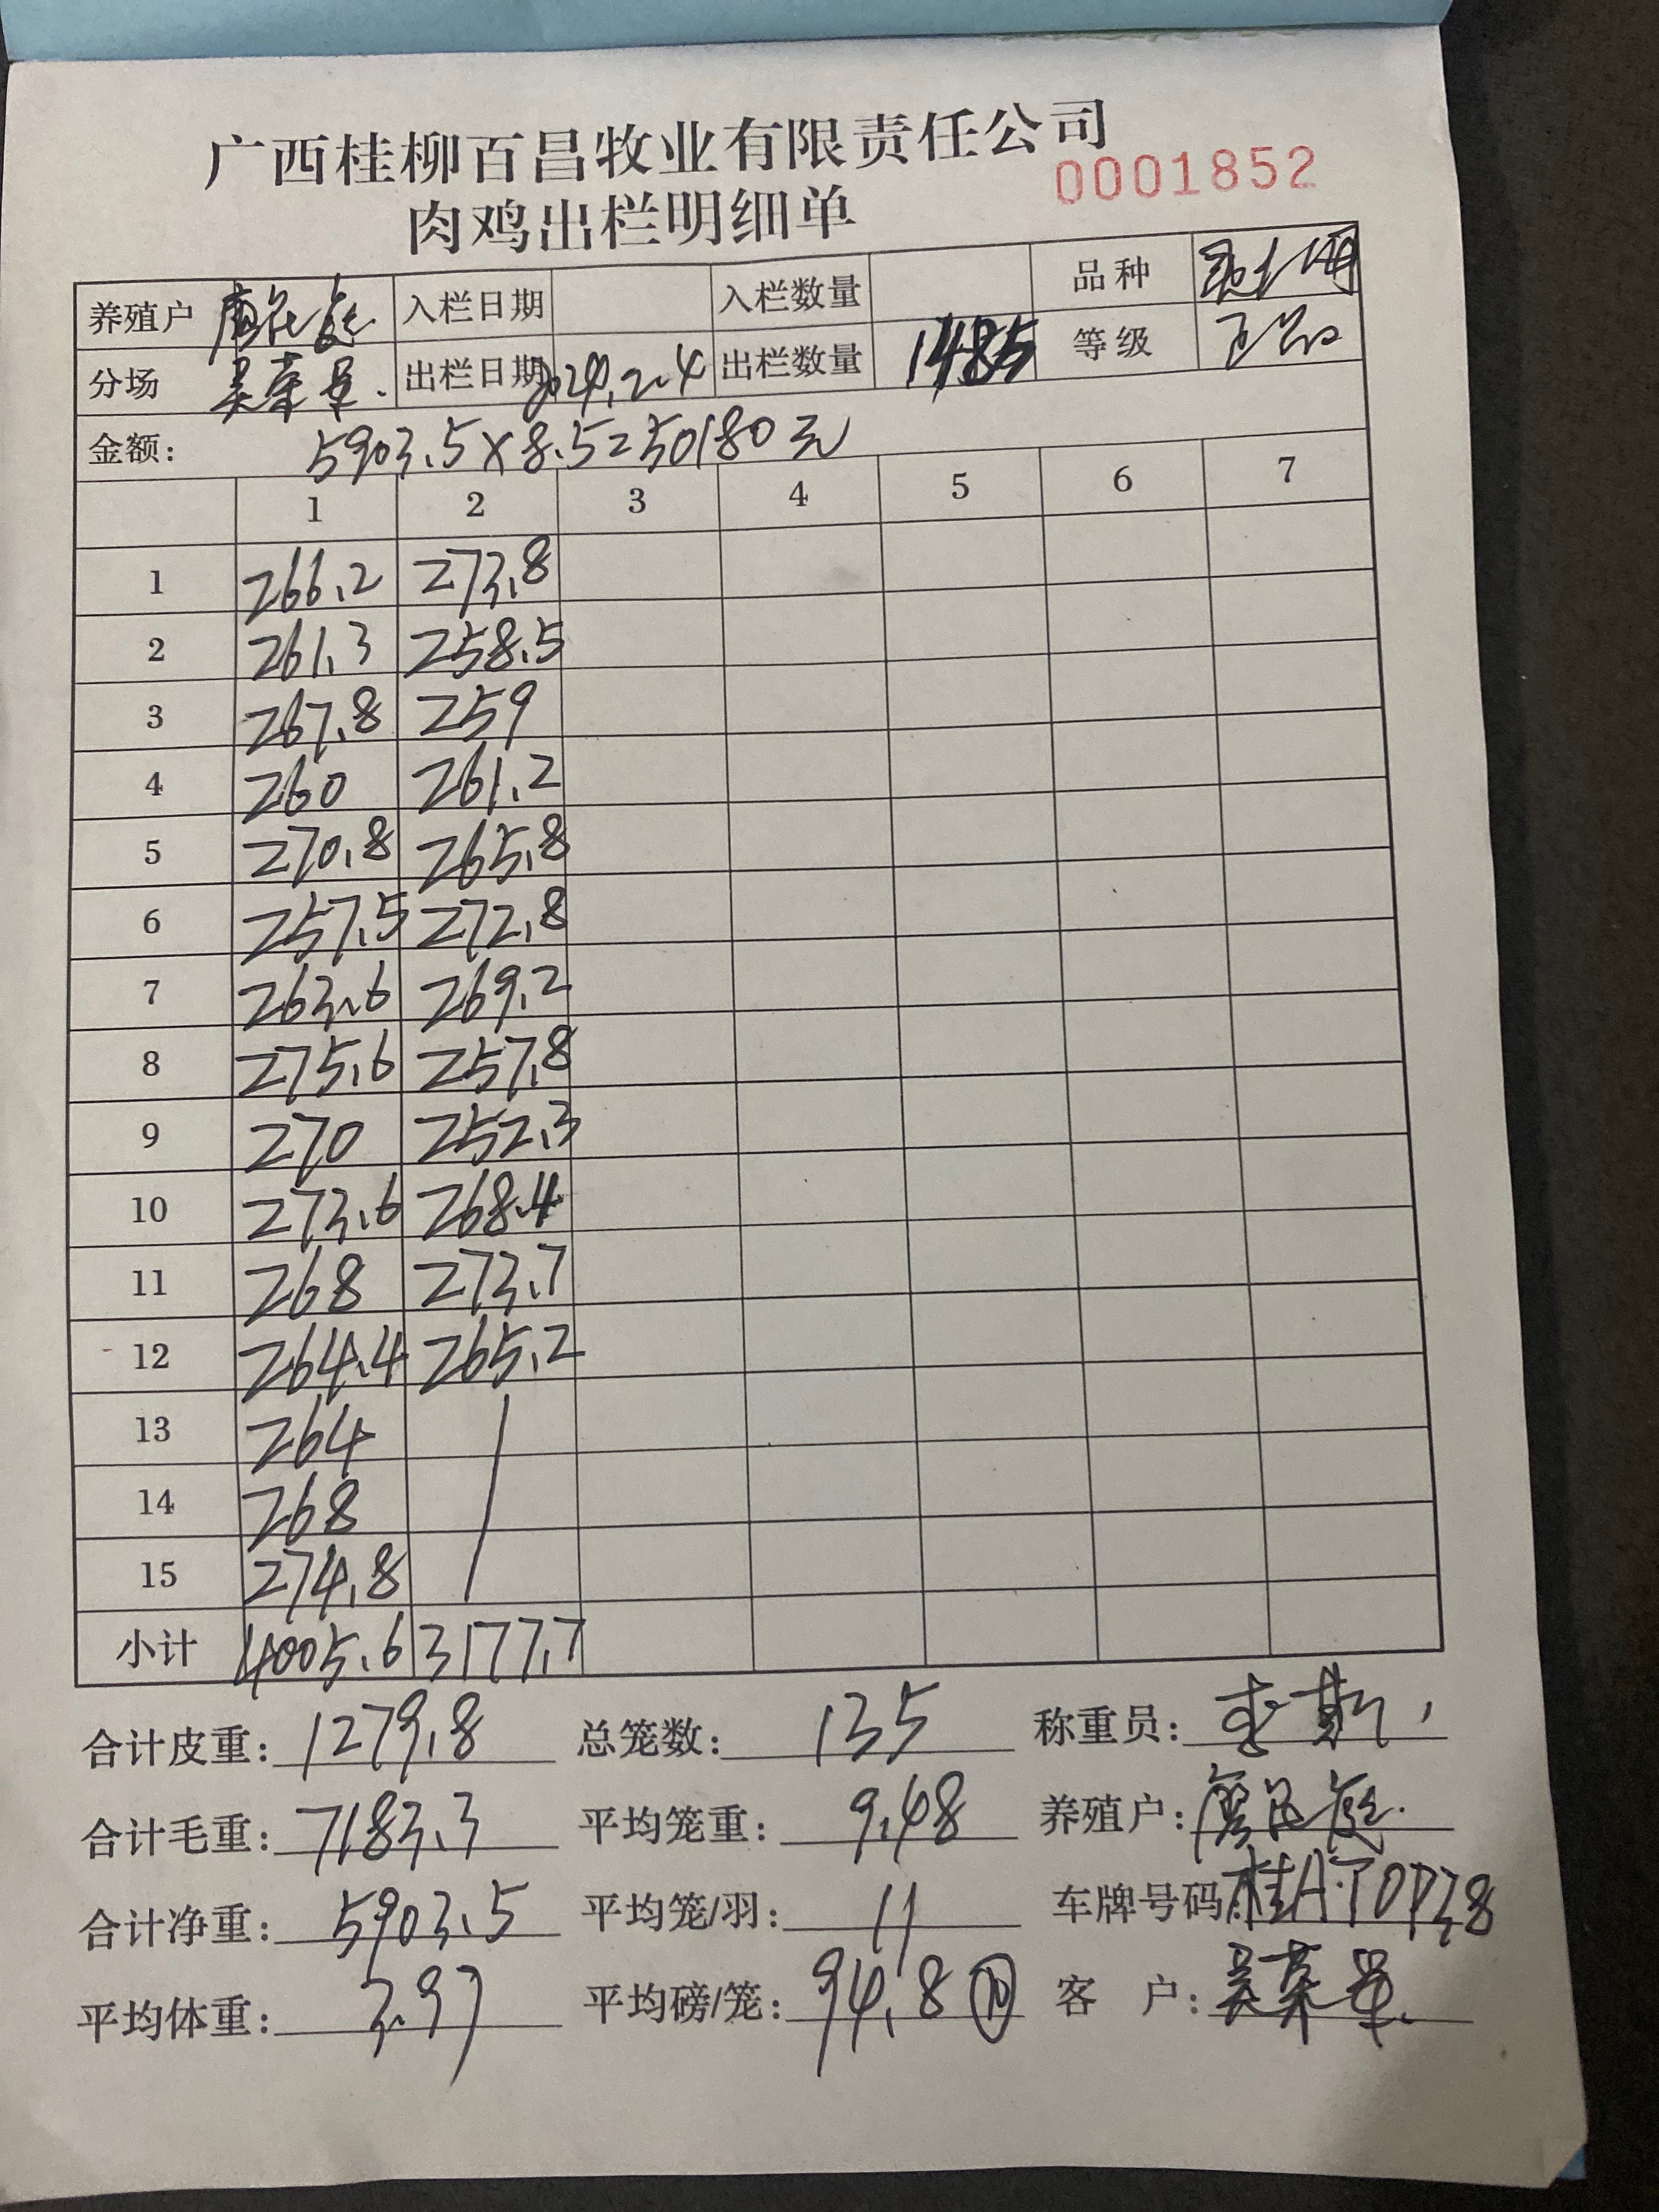 广西桂柳百昌牧业有限责任公司
0001852
肉鸡出栏明细单
养殖户 入栏日期 入栏数量 品种
分场 吴荣 出栏日期 2024.2.4 出栏数量 1485 等级 正品
金额: 5903.5×8.5=50180元
1 2 3 4 5 6 7
1 266.2 273.8
2 261.3 258.5
3 267.8 259
4 260 261.2
5 270.8 265.8
6 257.5 272.8
7 263.6 269.2
8 275.6 257.8
9 270 252.3
10 273.6 268.4
11 268 273.7
12 264.4 265.2
13 264
14 268
15 274.8
小计 4005.6 3177.7
合计皮重: 1279.8 总笼数: 135 称重员: 李
合计毛重: 7183.3 平均笼重: 9.48 养殖户:
合计净重: 5903.5 平均笼/羽: 11 车牌号码: 桂A·T0P38
平均体重: 3.97 平均磅/笼: 94.8 10 客 户: 吴荣